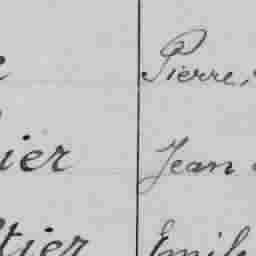 Pierre,
ier Jean
tier Emile